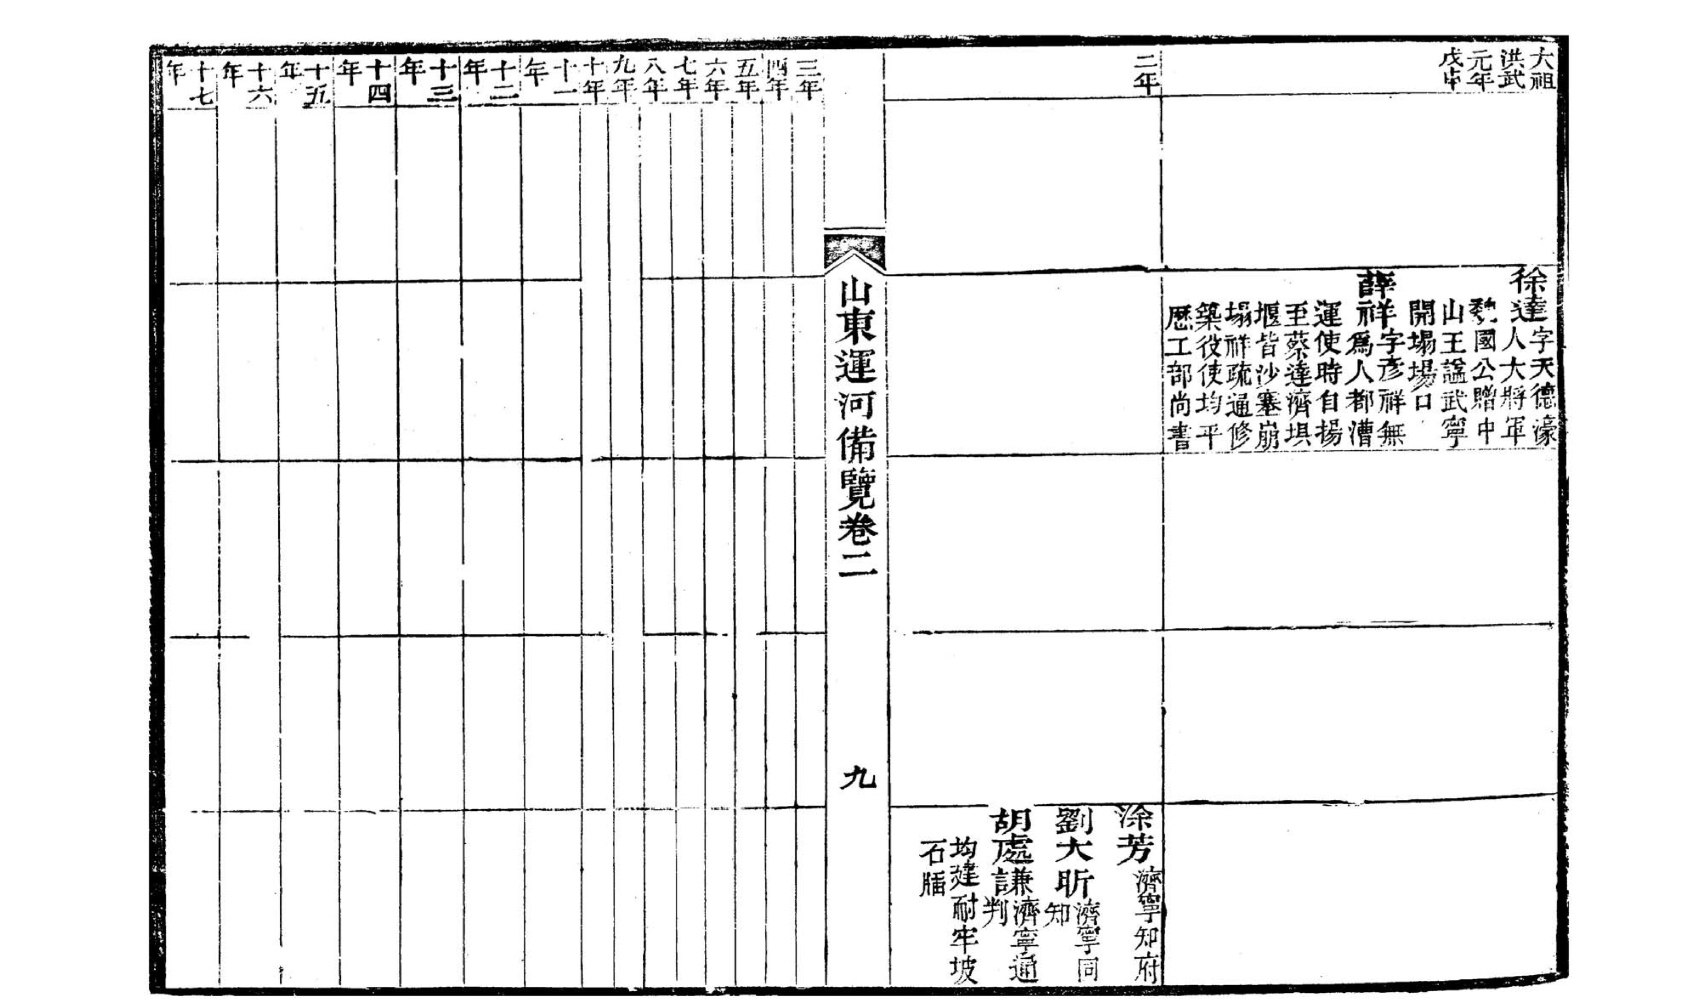 大祖
洪武
元年
戊申
徐達字天德濠
人大將軍
魏國公贈中
山王謚武寧
開塌場口
薛祥字彥祥無
爲人都漕
運使時自揚
至蔡達濟埧
堰皆沙塞崩
塌祥疏通修
築役使均平
歷工部尚書
二年
涂芳濟寧知府
劉大昕濟寧同
知
胡處謙濟寧通
判
均建耐牢坡
石牐
山東運河備覽卷二
九
三年
四年
五年
六年
七年
八年
九年
十年
十一
年
十二
年
十三
年
十四
年
十五
年
十六
年
十七
年